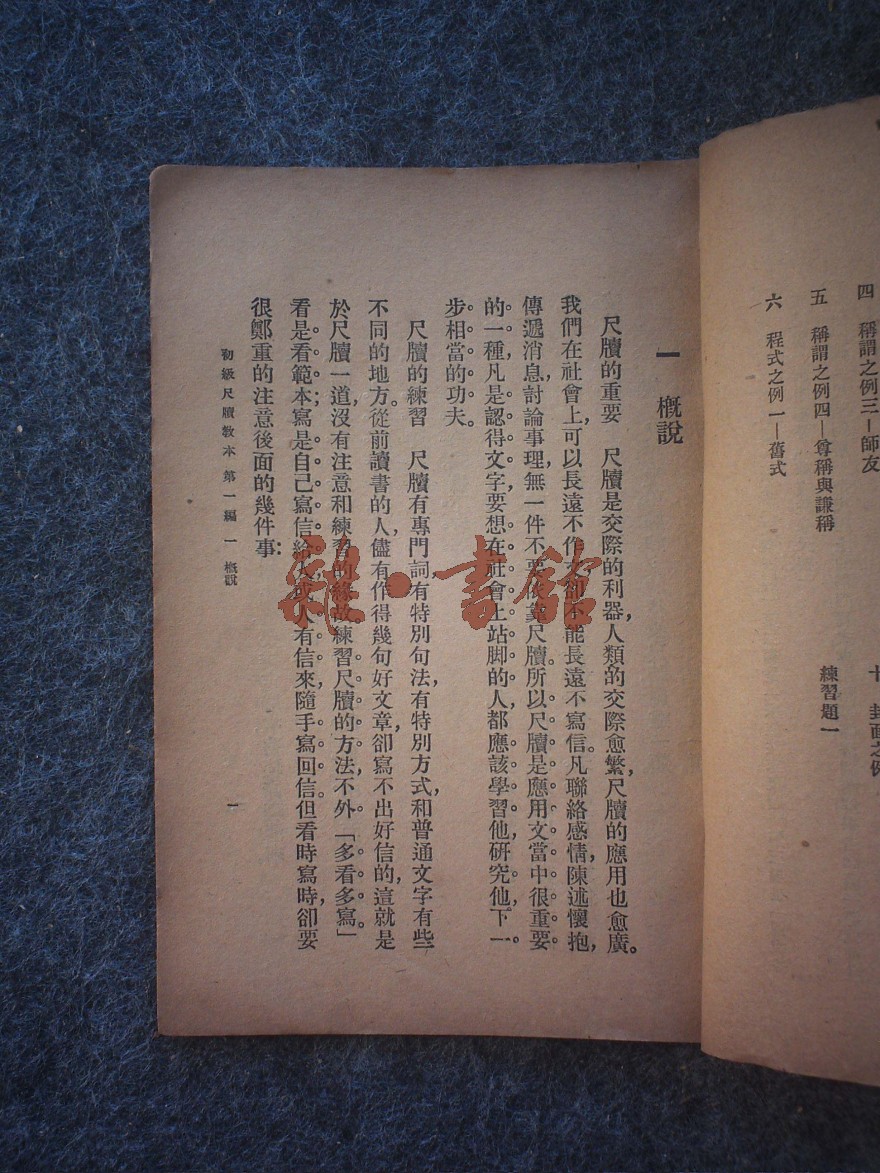 四　稱謂之例三－師友
五　稱謂之例四－尊稱與謙稱
六　程式之例一－舊式
十　封面之例
練習題一
一　概說
尺牘的重要　尺牘是交際的利器，人類的交際愈繁，尺牘的應用也愈廣。
我們在社會上，可以長遠不作文，卻不能長遠不寫信。凡聯絡感情，陳述懷抱，
傳遞消息，討論事理，無一件不要依靠尺牘。所以尺牘是應用文當中很重要
的一種，凡是認得文字，要想在社會上站脚的人，都應該學習他，研究他，下一
步相當的功夫。
尺牘的練習　尺牘有專門詞，有特別句法，有特別方式，和普通文字有些
不同的地方。從前讀書的人，儘有作得幾句好文章，卻寫不出好信的，這就是
於尺牘一道，沒有注意和練習的緣故。練習尺牘的方法，不外「多看多寫。」
看是看範本；寫是自己寫信給人，或人有信來，隨手寫回信。但看時寫時，卻要
很鄭重的注意後面的幾件事：
初級尺牘教本　第一編　一　概說
一
雜·書館